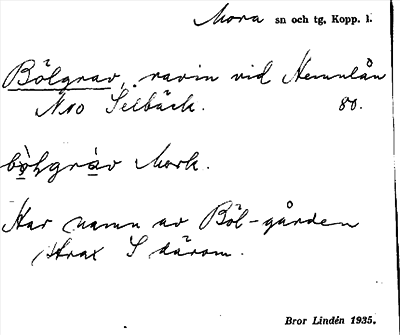 Mora sn och tg, Kopp. l.
Bölgrav, ravin vid Hemulån
N10 Selbäck. 80.
bòlgràv Mork.
Har namn av Böl-gården
strax S därom.
Bror Lindén 1935.